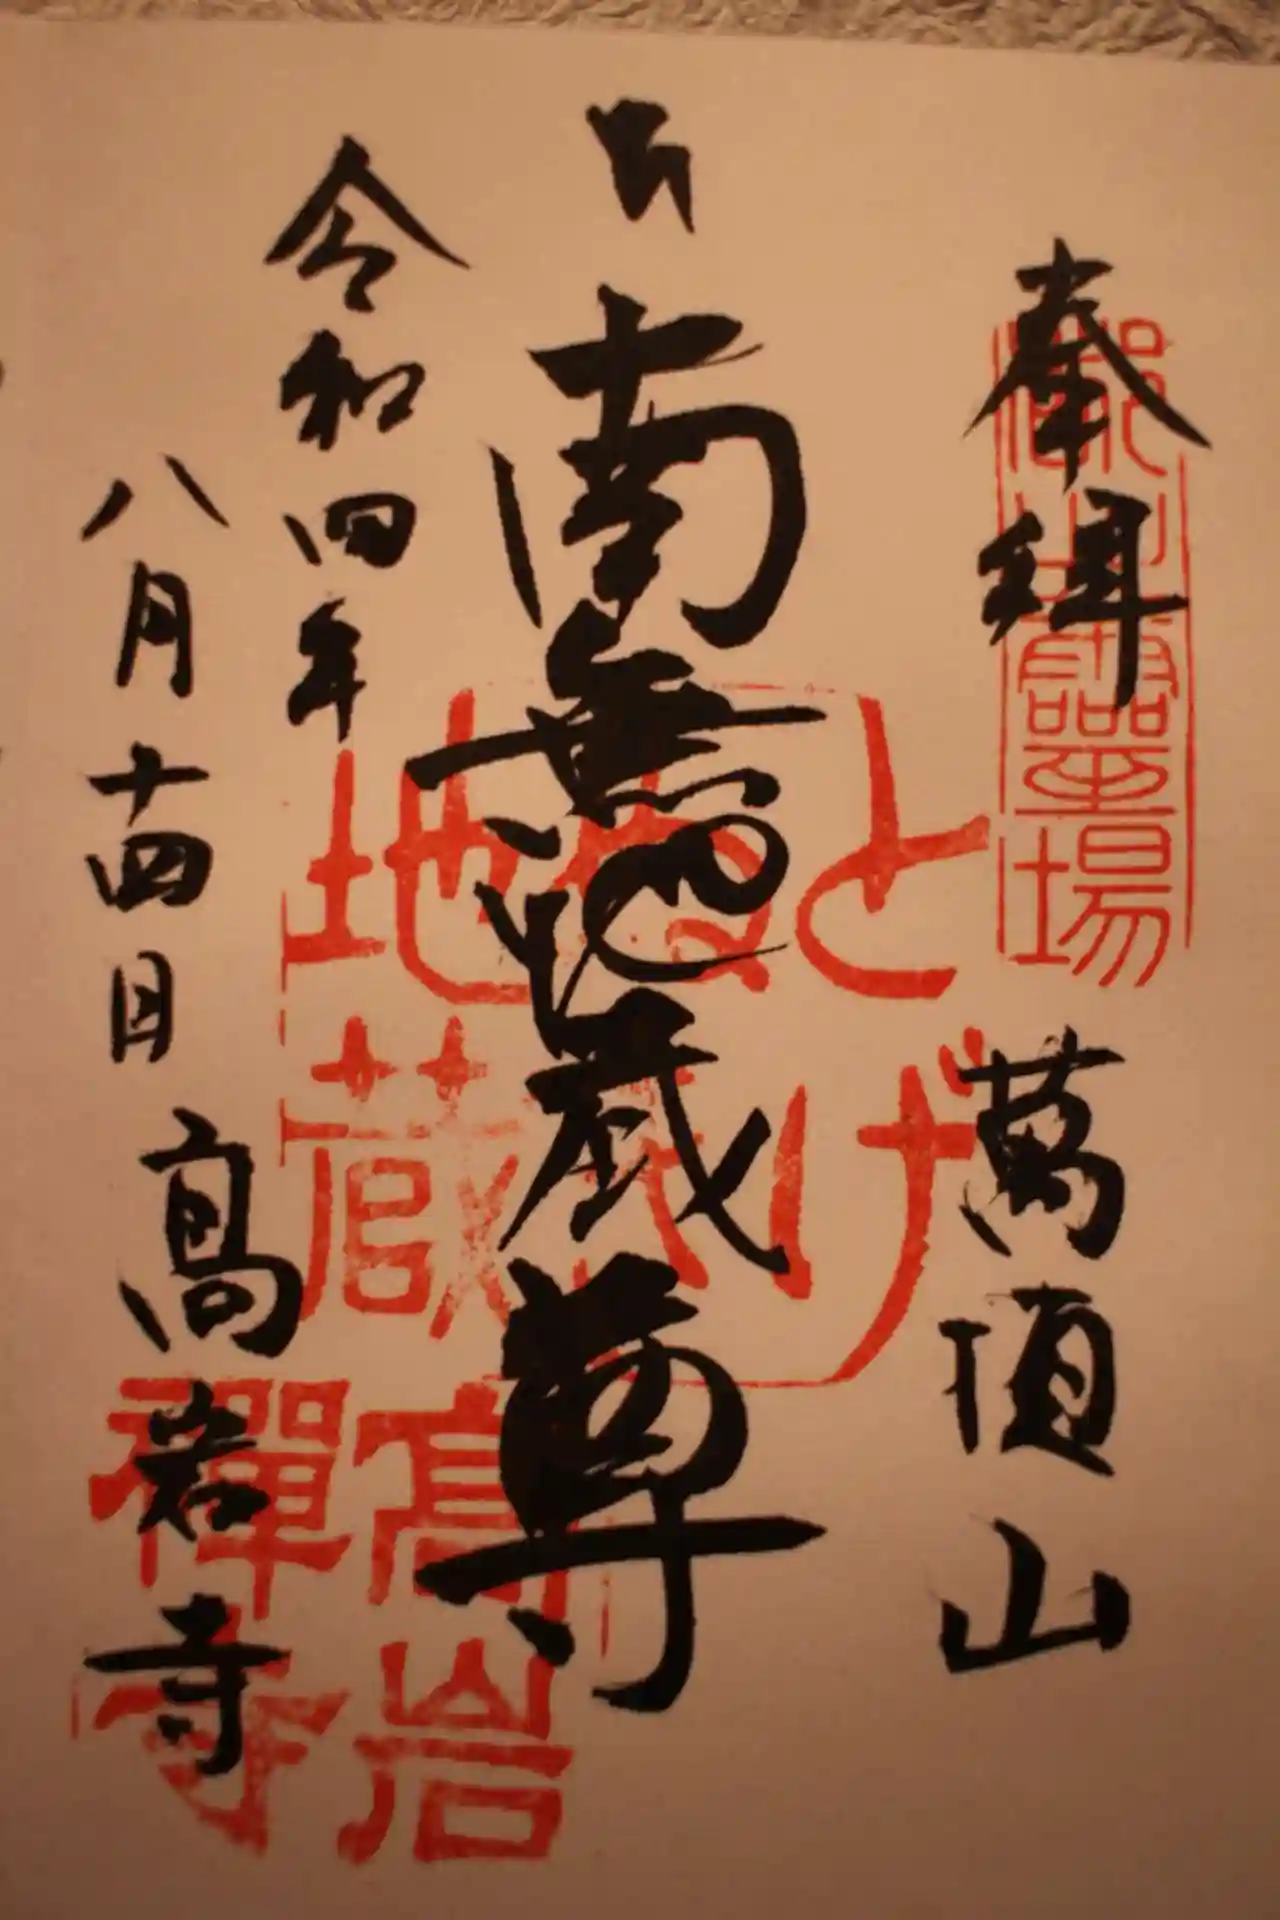 奉拝
萬頂山
南無地蔵尊
令和四年
八月十四日
高岩寺
霊場
とげ
ぬき
地蔵
高岩
禅寺